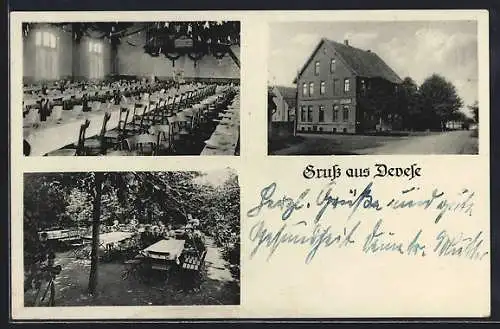 Gruß aus Devese
Herzl. Grüße und gute
Gesundheit Deine tr. Mutter